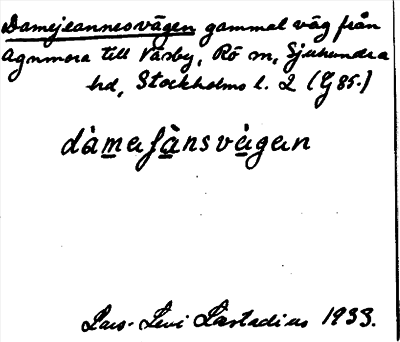 Damejeannesvägen gammal väg från
Agnmora till Väsby, Rö sn, Sjuhundra
hd, Stockholms l. 2 (G 85.)
dàmafànsvä̀gan
Lars-Levi Læstadius 1933.